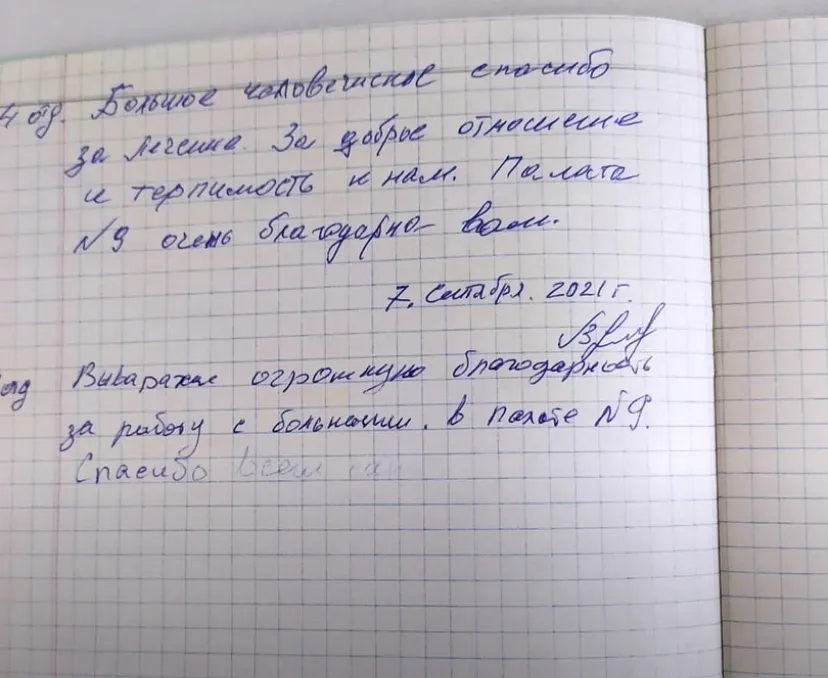 4 отд. Большое человеческое спасибо
за лечение. За доброе отношение
и терпимость к нам. Палата
№9 очень благодарно вам.
7. сентября. 2021 г.
отд Вываражаю огромную благодарность
за работу с больными. в палате №9.
Спасибо всем